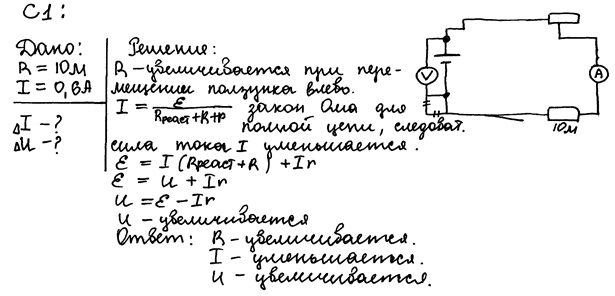 С1:
Дано:
R = 1Ом
I = 0,8А
ΔI - ?
ΔU - ?
Решение:
R - увеличивается при пере-
мещении ползунка влево.
I = ε / (Rреост + R + r) закон Ома для
полной цепи, следоват.
сила тока I уменьшается.
ε = I (Rреост + R) + Ir
ε = U + Ir
U = ε - Ir
U - увеличивается
Ответ: R - увеличивается.
I - уменьшается.
U - увеличивается.
V
A
1Ом